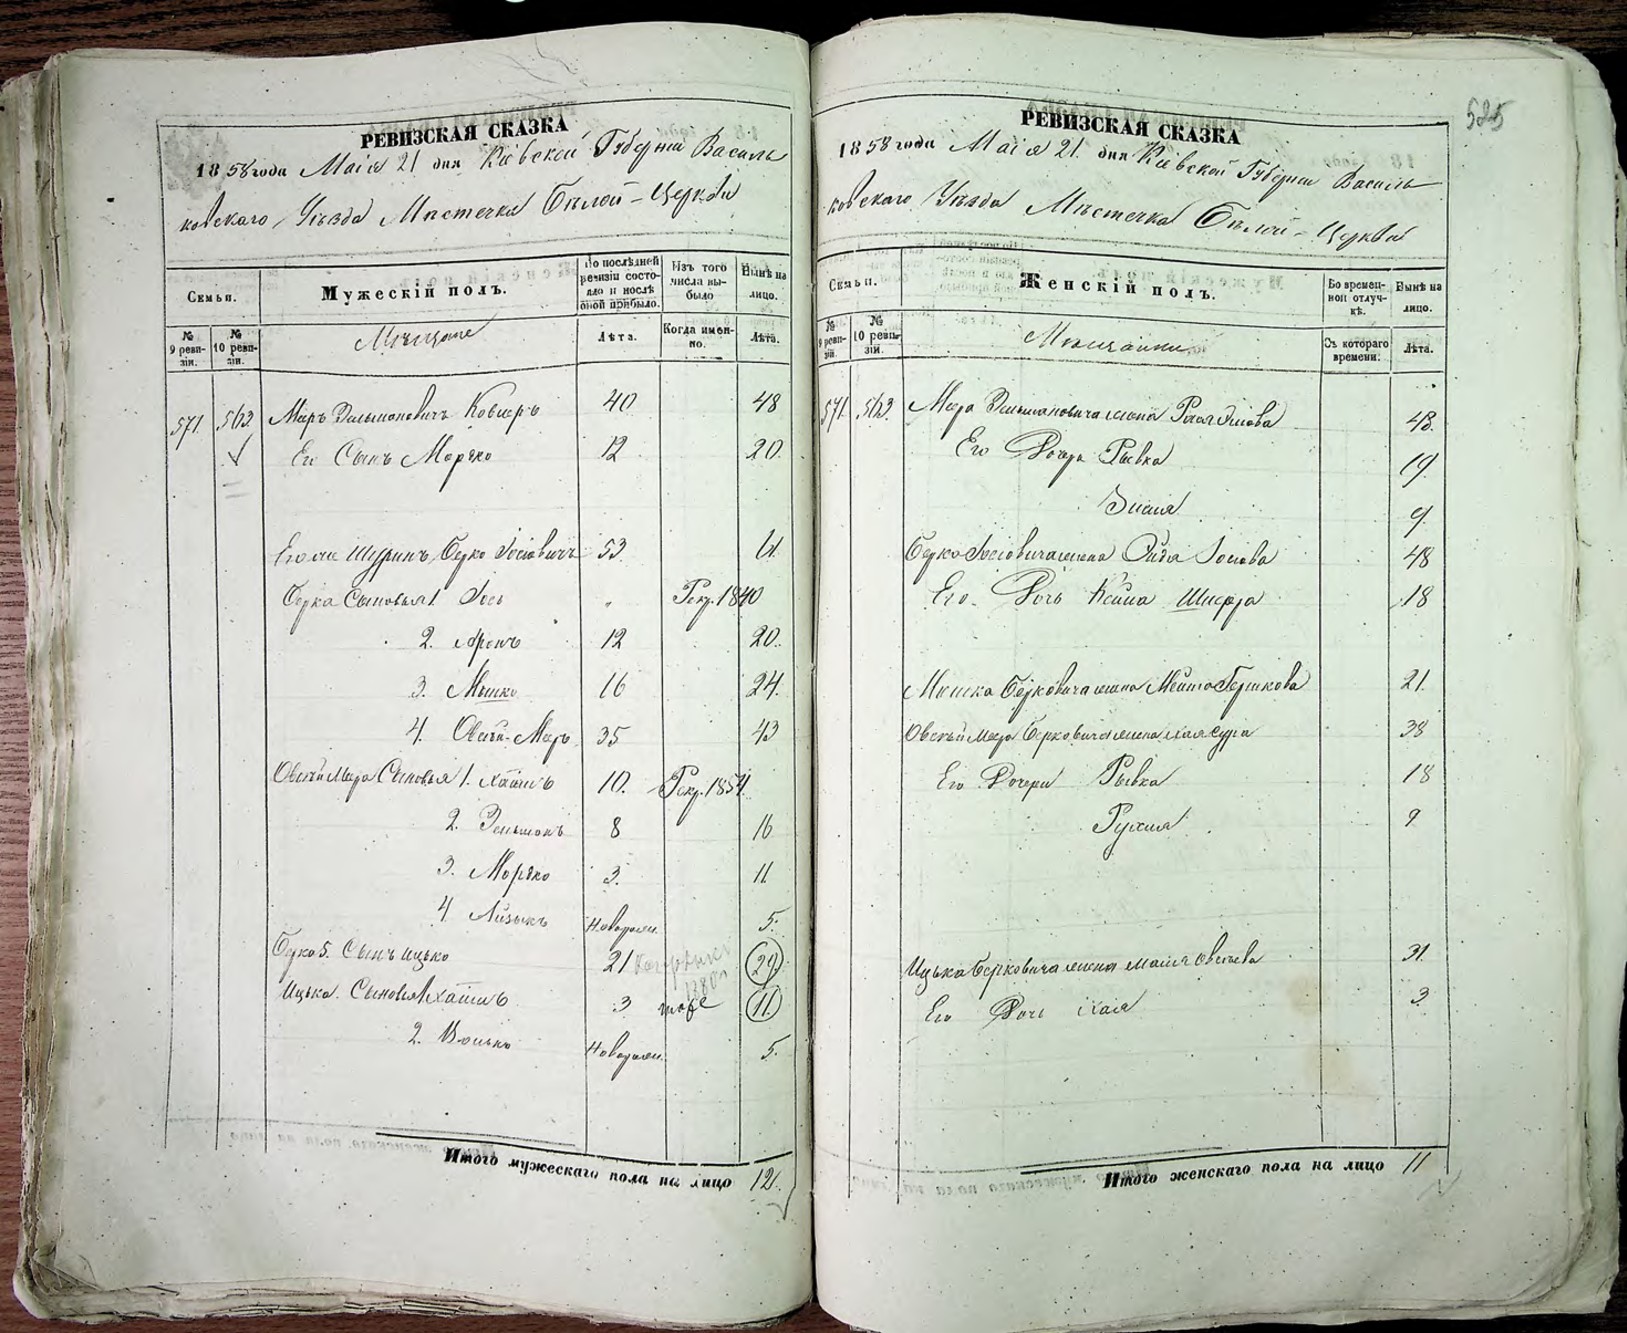 РЕВИЗСКАЯ СКАЗКА
1858 года Маія 21 дня Кіевской Губерніи Василь
ковскаго Уѣзда Мѣстечка Бѣлой-Церкви
Семьи.
Мужескій полъ.
По послѣдней ревизіи состояло и послѣ оной прибыло.
Изъ того числа выбыло
Нынѣ на лицо.
№ 9 ревизіи.
№ 10 ревизіи.
Мѣщане
Лѣта.
Когда именно.
Лѣта.
571 563 Меръ Зельмановичъ 40 48
Его Сынъ Мордко 12 20
Его же Шуринъ Берко Іосіовичъ 53 61
Берка Сыновья 1. Іось " Рекр. 1840
2. Аронъ 12 20.
3. Мошко 16 24.
4. Овсѣй-Меръ 35 43
Овсѣй Мера Сыновья 1. Хаимъ 10. Рекр. 1854
2. Зельманъ 8 16
3. Мордко 3. 11
4 Лейзыкъ Новорожд. 5.
Берко 5. Сынъ Ицько 21 29
Ицька Сыновья 1 Хаимъ 3 тоже 11
2. Новорожд. 5.
Итого мужескаго пола на лицо 12.
525
РЕВИЗСКАЯ СКАЗКА
1858 года Маія 21. дня Кіевской Губерніи Василь
ковскаго Уѣзда Мѣстечка Бѣлой-Церкви
Семьи.
Женскій полъ.
Во временной отлучкѣ.
Нынѣ на лицо.
№ 9 ревизіи.
№ 10 ревизіи.
Мѣщанки
Съ котораго времени.
Лѣта.
571 563. Мера Зельмановича жена 43.
Его Дочери Рывка 19.
9
Берко Іосіовича жена Іосіова 48
Его Дочь Шифра 18
Мошка Берковича жена Бершкова 21.
Овсѣй Мера Берковича жена Хая Сура 38
Его Дочери Рывка 18
Рухля 9
Ицька Берковича жена Овсѣева 31.
Его Дочь Хая 3.
Итого женскаго пола на лицо 11